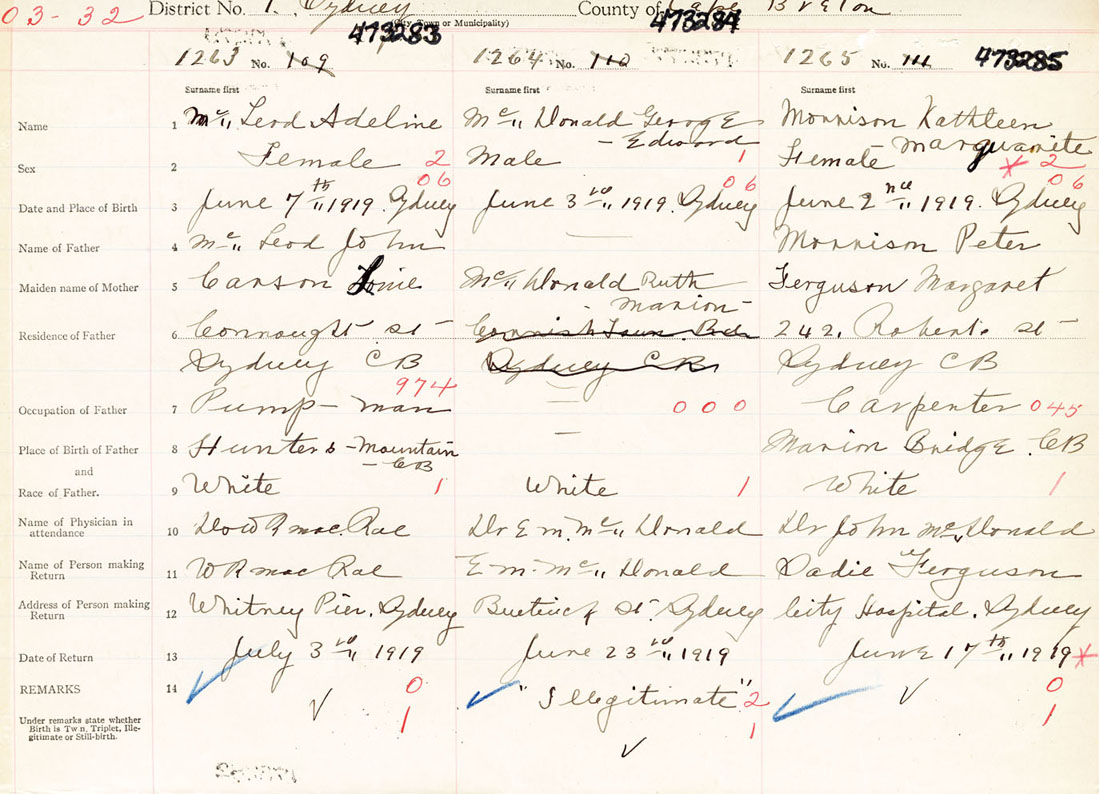 03-32 District No. 1. Sydney County of Cape Breton
(City, Town or Municipality)
473283 473284 473285
1263 No. 109 1264 No. 110 1265 No. 111
Surname first Surname first Surname first
Name 1 Mc„ Leod Adeline Mc„ Donald George Morrison Kathleen
- Edward Marguarite
Sex 2 Female 2 Male 1 Female * 2
06 06 06
Date and Place of Birth 3 June 7th„ 1919. Sydney June 3rd„ 1919. Sydney June 2nd„ 1919. Sydney
Name of Father 4 Mc„ Leod John — Morrison Peter
Maiden name of Mother 5 Carson Mc„ Donald Ruth Ferguson Margaret
Marion -
Residence of Father 6 Connaught st - Cornish Town Rd 242, Robert. st -
Sydney CB Sydney CB Sydney CB
974
Occupation of Father 7 Pump - man 000 Carpenter 045
Place of Birth of Father 8 Hunters - Mountain — Marion Bridge. CB
and - CB
Race of Father. 9 White 1 White 1 White 1
Name of Physician in 10 W R mac. Rae Dr E m. Mc„ Donald Dr John Mc„ Donald
attendance
Name of Person making 11 W R mac Rae E. m. Mc„ Donald Sadie Ferguson
Return
Address of Person making 12 Whitney Pier. Sydney st. Sydney City Hospital. Sydney
Return
Date of Return 13 July 3rd„ 1919 June 23rd„ 1919 June 17th„ 1919 *
REMARKS 14 0 "Illegitimate" 2 0
Under remarks state whether 1 1 1
Birth is Twin, Triplet, Ille-
gitimate or Still-birth.